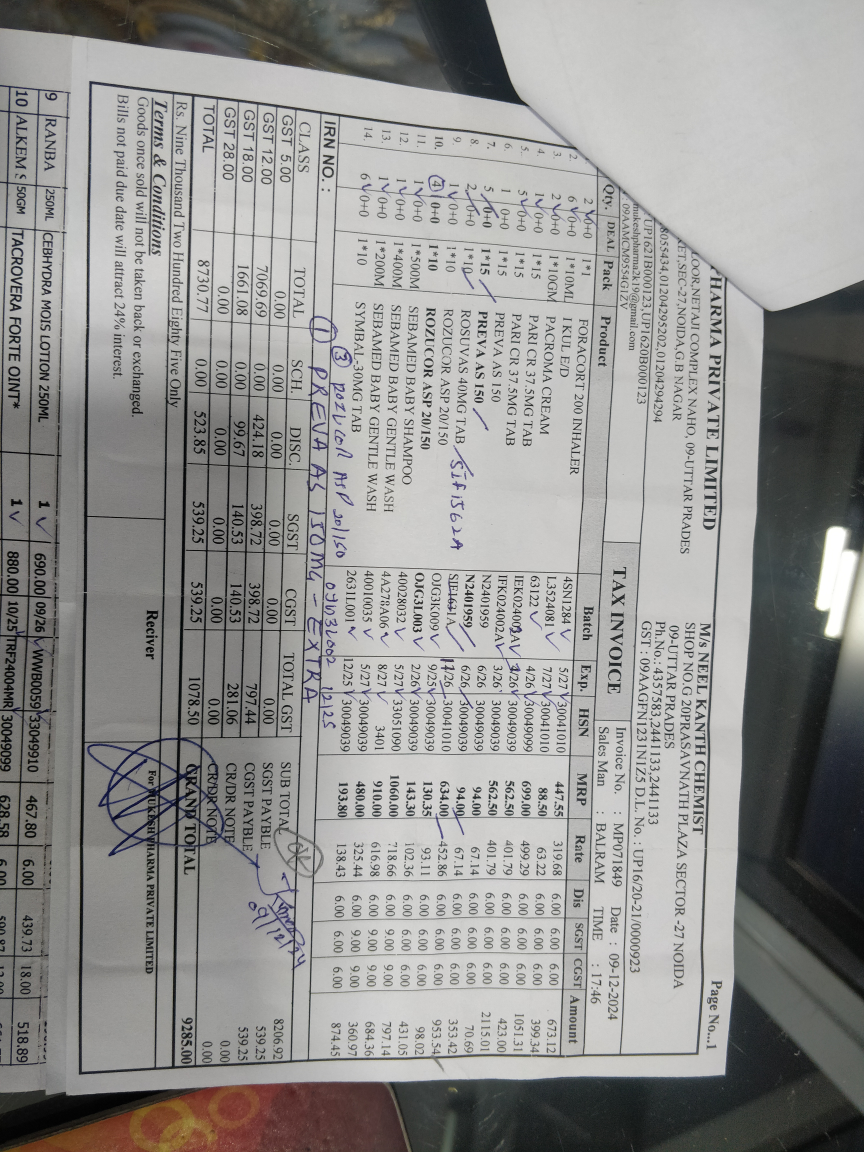 Page No...1
PHARMA PRIVATE LIMITED
LOOR,NETAJI COMPLEX NAHO, 09-UTTAR PRADES
KET,SEC-27,NOIDA,G.B NAGAR
8055434,01204295202,01204294294
UP1621B000123,UP1620B000123
mukeshpharma2k19@gmail.com
09AAMCM9554G1ZV
M/s NEEL KANTH CHEMIST
SHOP NO.G 20PRASAVNATH PLAZA SECTOR -27 NOIDA
09-UTTAR PRADES
Ph.No.: 4357583,2441133,2441133
GST : 09AAGFN1231N1Z5 D.L. No. : UP16/20-21/0000923
TAX INVOICE
Invoice No. : MP071849 Date : 09-12-2024
Sales Man : BALRAM TIME : 17:46
Qty. DEAL Pack Product Batch Exp. HSN MRP Rate Dis SGST CGST Amount
2 0+0 1*1 FORACORT 200 INHALER 4SN1284 5/27 30041010 447.55 319.68 6.00 6.00 6.00 673.12
2. 6 0+0 1*10ML I KUL E/D L3524081 7/27 30041010 88.50 63.22 6.00 6.00 6.00 399.34
3. 2 0+0 1*10GM PACROMA CREAM 63122 4/26 30049099 699.00 499.29 6.00 6.00 6.00 1051.31
4. 1 0+0 1*15 PARI CR 37.5MG TAB IEK024002A 2/26 30049039 562.50 401.79 6.00 6.00 6.00 423.00
5. 5 0+0 1*15 PARI CR 37.5MG TAB IFK024002A 3/26 30049039 562.50 401.79 6.00 6.00 6.00 2115.01
6. 1 0+0 1*15 PREVA AS 150 N2401959 6/26 30049039 94.00 67.14 6.00 6.00 6.00 70.69
7. 5 0+0 1*15 PREVA AS 150 N2401959 6/26 30049039 94.00 67.14 6.00 6.00 6.00 353.42
8. 2 0+0 1*10 ROSUVAS 40MG TAB SIF1562A SIF1631A 11/26 30041010 634.00 452.86 6.00 6.00 6.00 953.54
9. 1 0+0 1*10 ROZUCOR ASP 20/150 OJG3K009 9/25 30049039 130.35 93.11 6.00 6.00 6.00 98.02
10. 4 0+0 1*10 ROZUCOR ASP 20/150 OJG3L003 2/26 30049039 143.30 102.36 6.00 6.00 6.00 431.05
11. 1 0+0 1*500M SEBAMED BABY SHAMPOO 40028032 5/27 33051090 1060.00 718.66 6.00 9.00 9.00 797.14
12. 1 0+0 1*400M SEBAMED BABY GENTLE WASH 4A27BA06 8/27 3401 910.00 616.98 6.00 9.00 9.00 684.36
13. 1 0+0 1*200M SEBAMED BABY GENTLE WASH 40010035 5/27 30049039 480.00 325.44 6.00 9.00 9.00 360.97
14. 6 0+0 1*10 SYMBAL-30MG TAB 2631L001 12/25 30049039 193.80 138.43 6.00 6.00 6.00 874.45
③ ROZUCOR ASP 20/150 12/25
IRN NO. : ① PREVA AS 150MG - EXTRA
CLASS TOTAL SCH. DISC. SGST CGST TOTAL GST
GST 5.00 0.00 0.00 0.00 0.00 0.00 0.00
GST 12.00 7069.69 0.00 424.18 398.72 398.72 797.44
GST 18.00 1661.08 0.00 99.67 140.53 140.53 281.06
GST 28.00 0.00 0.00 0.00 0.00 0.00 0.00
TOTAL 8730.77 0.00 523.85 539.25 539.25 1078.50
SUB TOTAL 8206.92
SGST PAYBLE 539.25
CGST PAYBLE 539.25
CR/DR NOTE 0.00
CR/DR NOTE 0.00
OK
09/12/24
Rs. Nine Thousand Two Hundred Eighty Five Only
GRAND TOTAL 9285.00
Terms & Conditions
Goods once sold will not be taken back or exchanged.
Bills not paid due date will attract 24% interest.
Reciver
For MUKESH PHARMA PRIVATE LIMITED
9 RANBA 250ML CEBHYDRA MOIS LOTION 250ML 1 690.00 09/26 WWB0059 33049910 467.80 6.00 439.73 18.00 518.89
10 ALKEM S 50GM TACROVERA FORTE OINT* 1 880.00 10/25 TRF24004MR 30049099 628.58 6.00